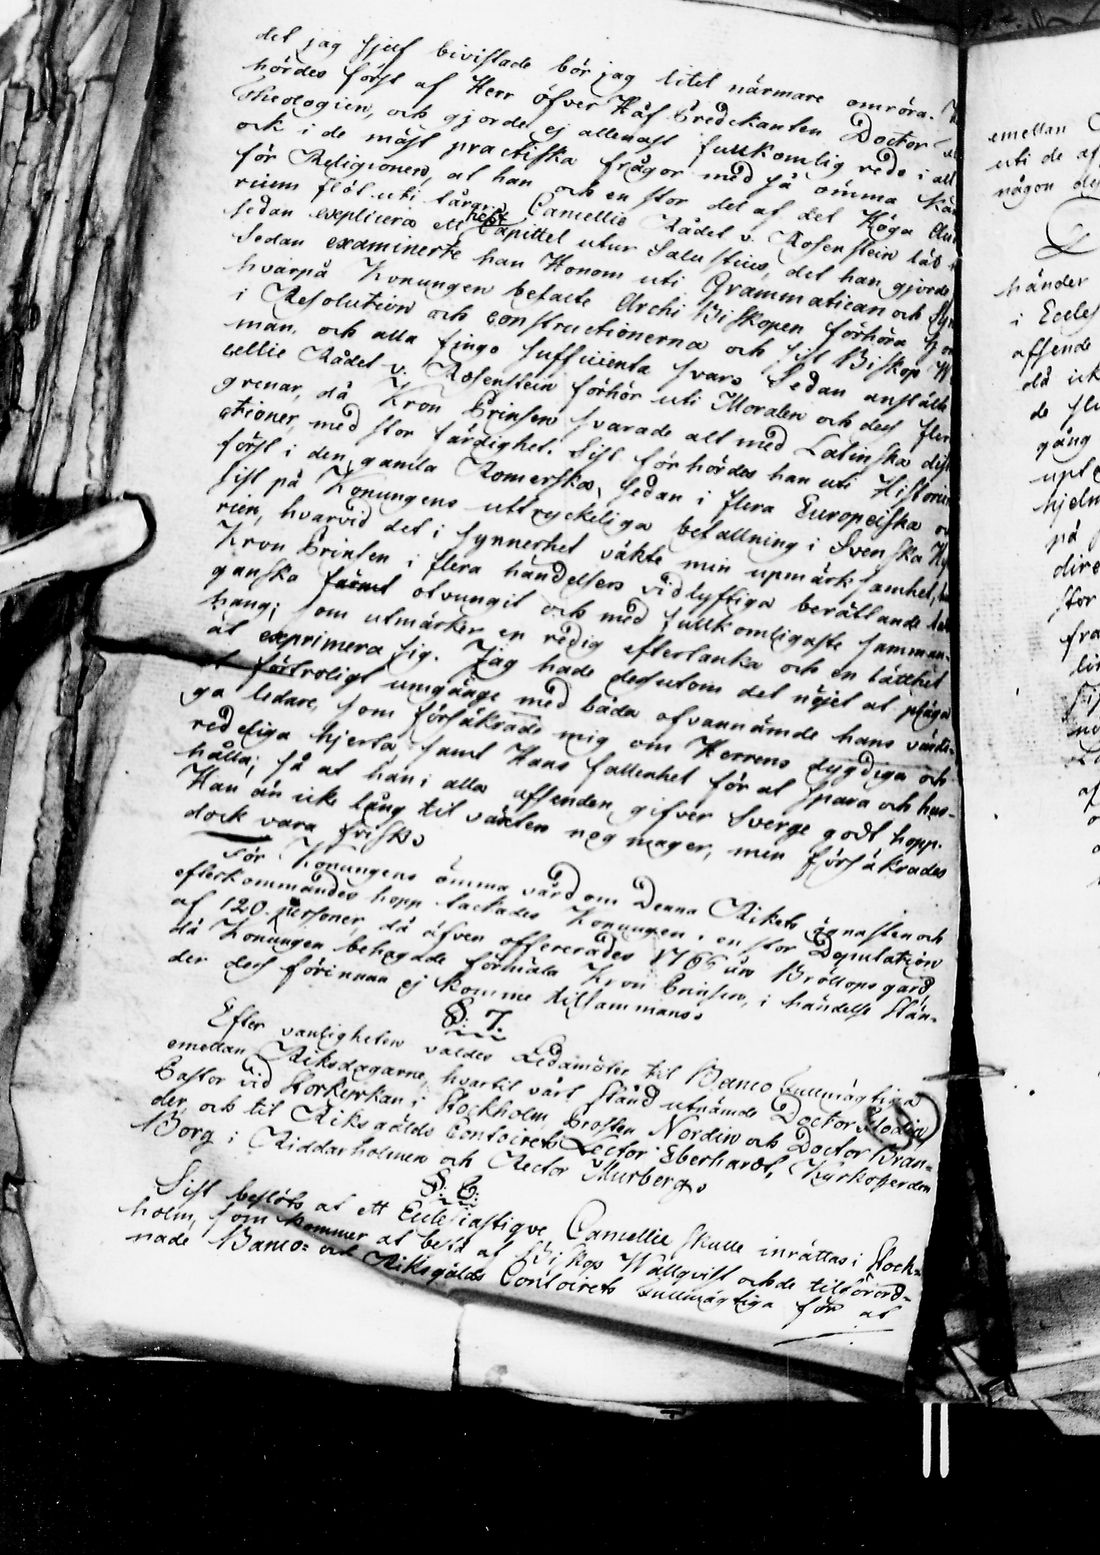 det jag sjelf bivistade bör jag litet närmare omröra.
hördes först af Herr öfver Håf Predickanten Doctor
Theologien, och gjorde ej allenast fullkomlig rede i all
ock i de mäst practiska frågor med så ömma
för Religionen, at han och en stor del af det Höga
rium flöt uti tårar. Cancellie Rådet v. Rosenstein lät
sedan explicera ett helt Capittel utur Salustius, det han gjorde
Sedan examinerte han Honom uti Grammatican och
hvarpå Konungen befalte Archi Biskopen förhöra
i Resolution och constructionerna och sist Biskop
man, och alla fingo sufficienta svar. Sedan anstälte
cellie Rådet v. Rosenstein förhör uti Moralen och dess flera
grenar, då Kron Prinsen svarade alt med Latinska
ctioner, med stor färdighet. Sist förhördes han uti Historien
först i den gamla Romerska, sedan i flera Europeiska
sist på Konungens uttryckeliga befallning i Svenska
rien, hvarvid det i synnerhet väkte min upmärksamhet,
Kron Prinsen i flera händelsers vidlyftiga berättande
ganska otvungit och med fullkomligaste samman-
hang; som utmärker en redig eftertanka och en lätthet
at exprimera sig. Jag hade desutom det nöjet at pläga
et förtroligt umgänge med båda ofvannämde hans värdi-
ga ledare, som försäkrade mig om Herrens dygdiga och
redeliga hjerta samt Hans fallenhet för at spara och hus-
hålla; så at han i alla afseenden gifver Sverge godt hopp.
Han är icke lång til växten nog mager, men försäkrades
dock vara frisk.
För Konungens ömma vård om Denna Rikets ägnasten och
efterkommandes hopp tackades Konungen, en stor Deputation
af 120. Personer, då äfven offererades 1766 års Bröllops gärd,
då Konungen behagade förmäla Kron Prinsen, i händelse Stän-
der dess förinnan ej komme tillsammans.
§. 7.
Efter vanligheten valdes Ledamöter til Banco Fullmägtige
emellan Riksdagarne, hvartil vårt Stånd utnämde Doctor Flodin,
Pastor vid Storkyrkan i Stockholm, Prosten Nordin och Doctor Bran-
der, och til Riksgälds Contoiret Lector Eberhardt, Kyrkoherden
Borg i Riddarholmen och Rector Murberg.
§. 8.
Sist beslöts at ett Ecclesiastique Cancellie skulle inrättas i Stock-
holm, som kommer at bestå af Biskop Wallqvist och de tilförord-
nade Banco- och Riksgälds Contoirets Fullmägtige för at
emellan
uti de af
någon des
händer
i Eccles
afseende
de
gång
hjelm
på
dire
stor
fra